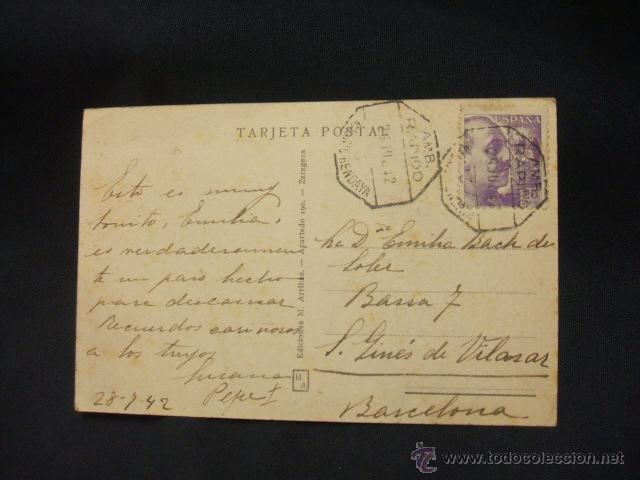 TARJETA POSTAL
Esto es muy
bonito, Emilia,
es verdaderamen
te un pais hecho
para descansar
Recuerdos cariñosos
a los tuyos
Susana
Pepe
28-7-42
Ediciones M. Arribas. — Apartado 190. — Zaragoza
H A
AMB.
RAPIDO
HENDAYA
ESPAÑA
AMB.
RAPIDO
Emilia Bach de
Soler
Bassa 7
S. Ginés de Vilasar
Barcelona
todocoleccion
www.todocoleccion.net